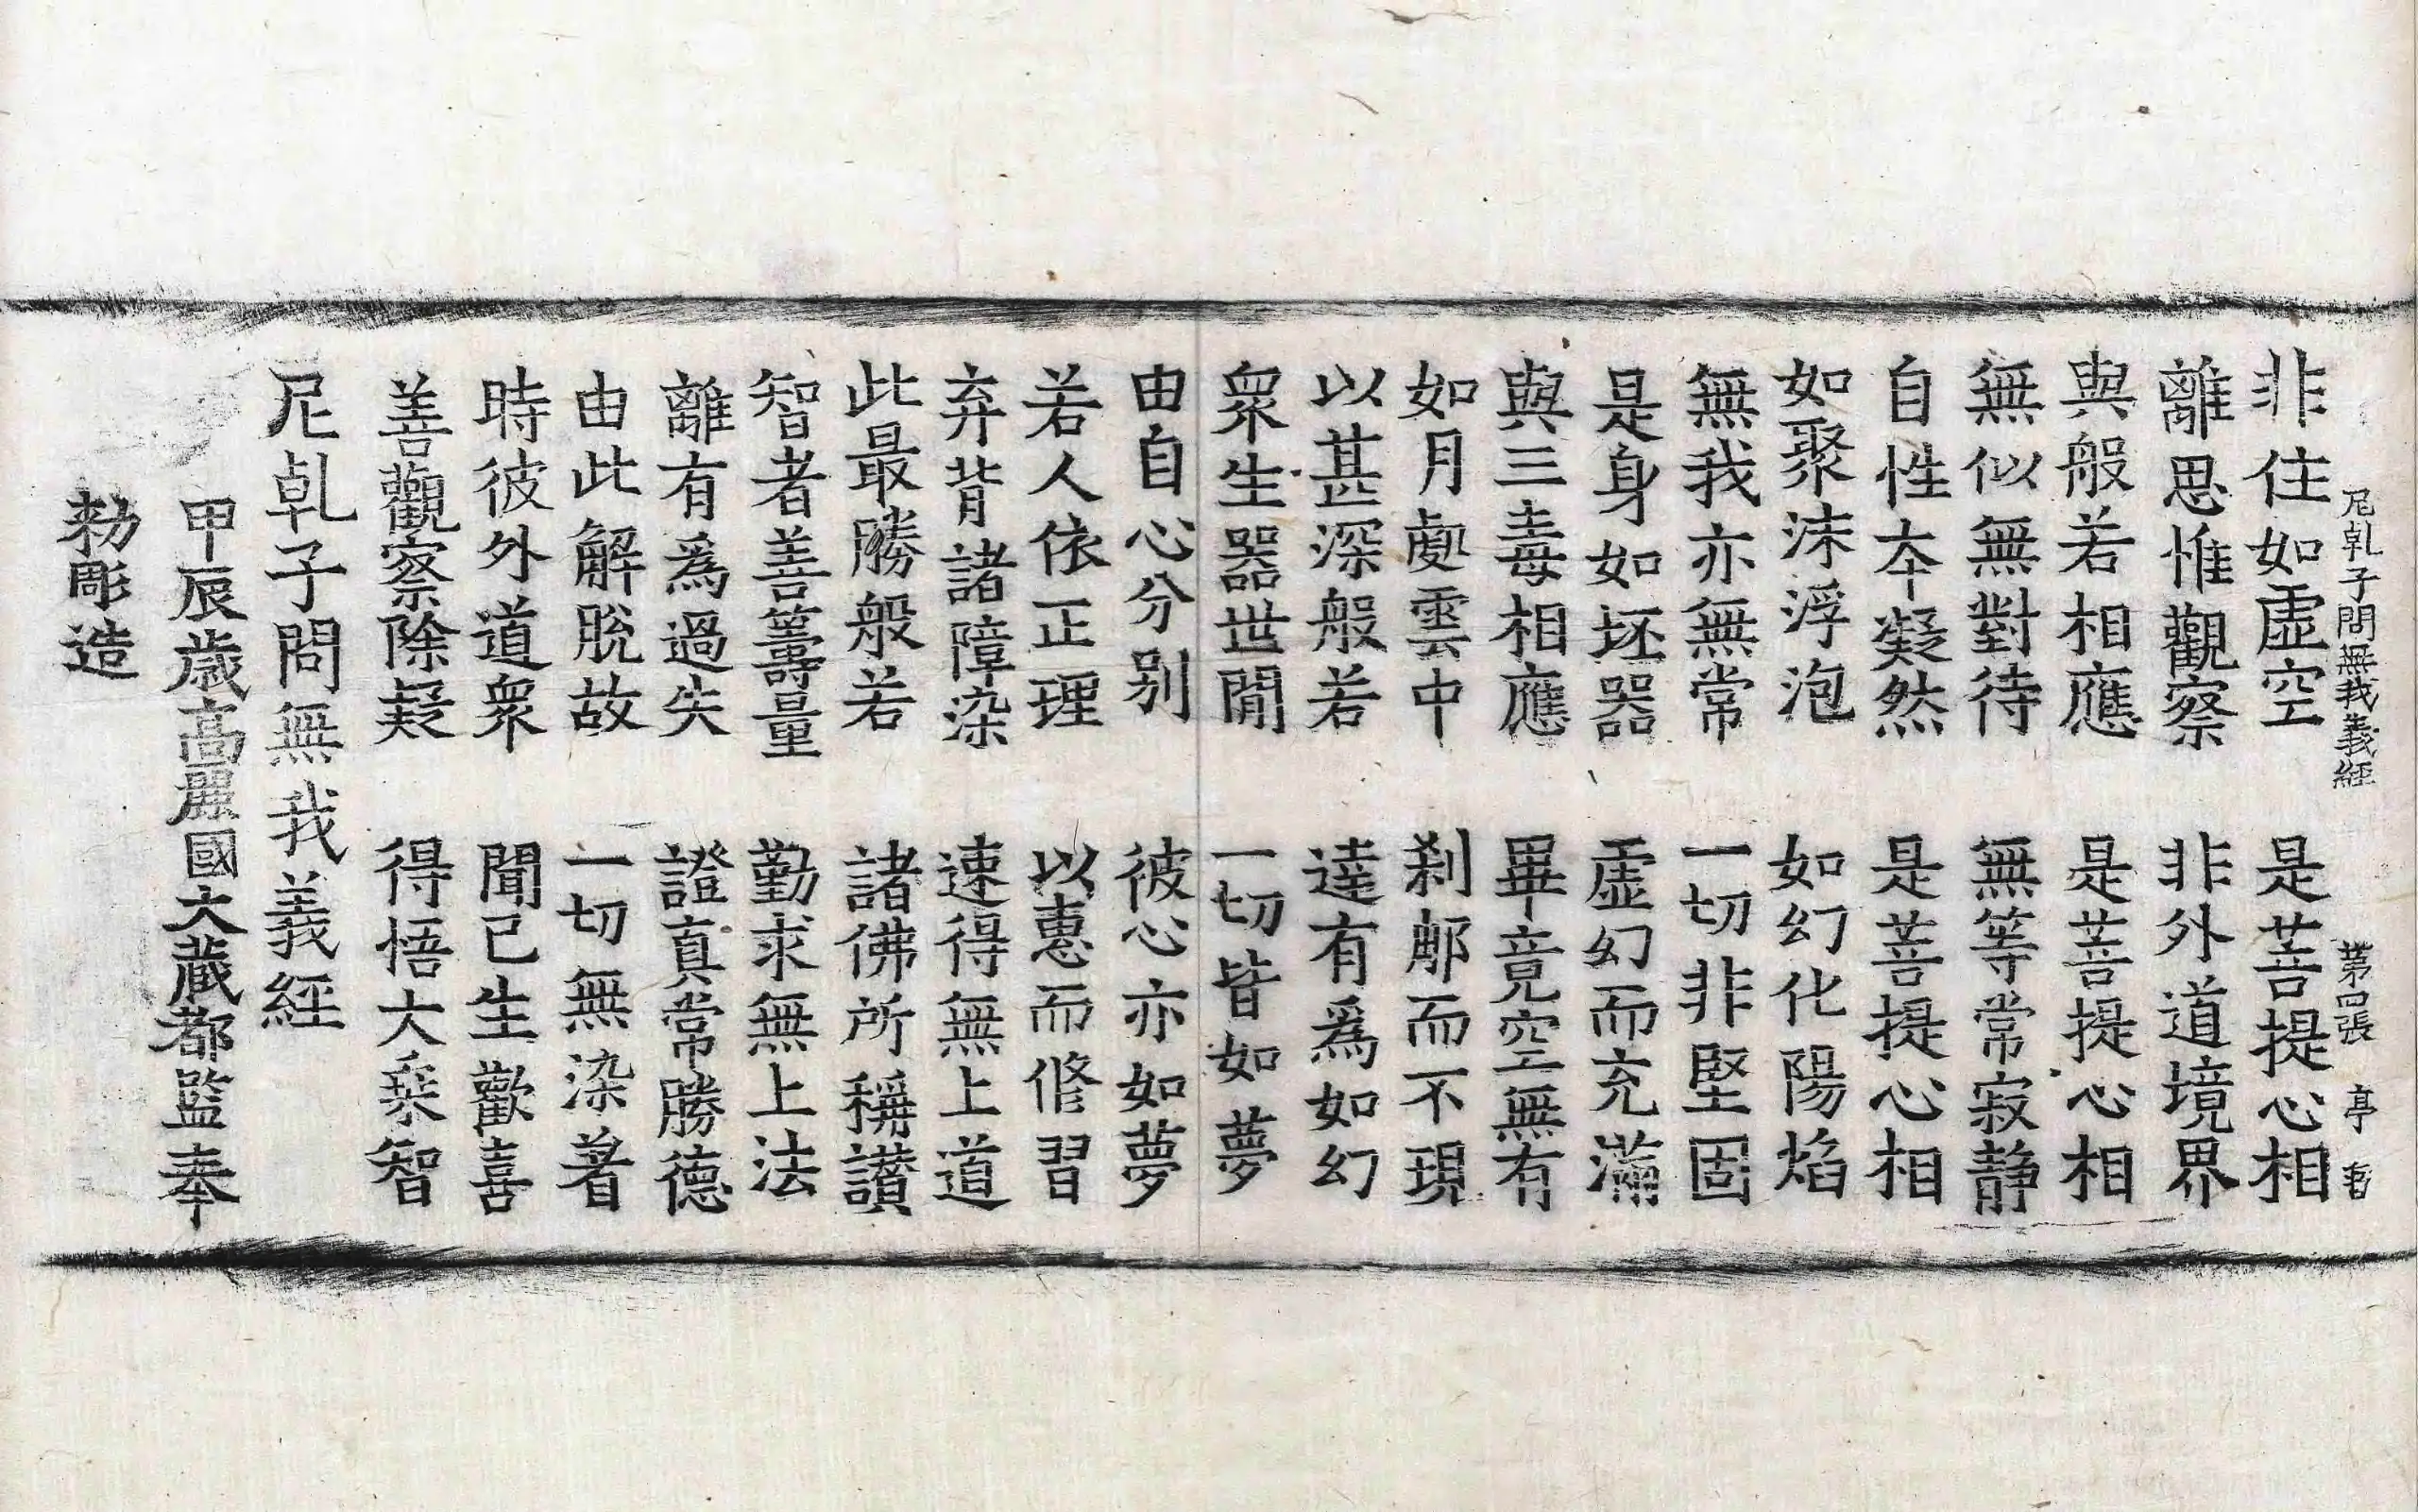 尼乹子問無我義經 第四張 亭
非住如虛空 是菩提心相
離思惟觀察 非外道境界
與般若相應 是菩提心相
無似無對待 無等常寂静
自性夲凝然 是菩提心相
如聚沫浮泡 如幻化陽焰
無我亦無常 一切非堅固
是身如坯器 虛幻而充滿
與三毒相應 畢竟空無有
如月處雲中 刹那而不現
以甚深般若 達有爲如幻
衆生器世閒 一切皆如夢
由自心分别 彼心亦如夢
若人依正理 以惠而修習
弃背諸障染 速得無上道
此最勝般若 諸佛所稱讃
智者善籌量 勤求無上法
離有爲過失 證真常勝德
由此解脫故 一切無染著
時彼外道衆 聞已生歡喜
善觀察除疑 得悟大乗智
尼乹子問無我義經
甲辰歳高麗國大藏都監奉
勑彫造